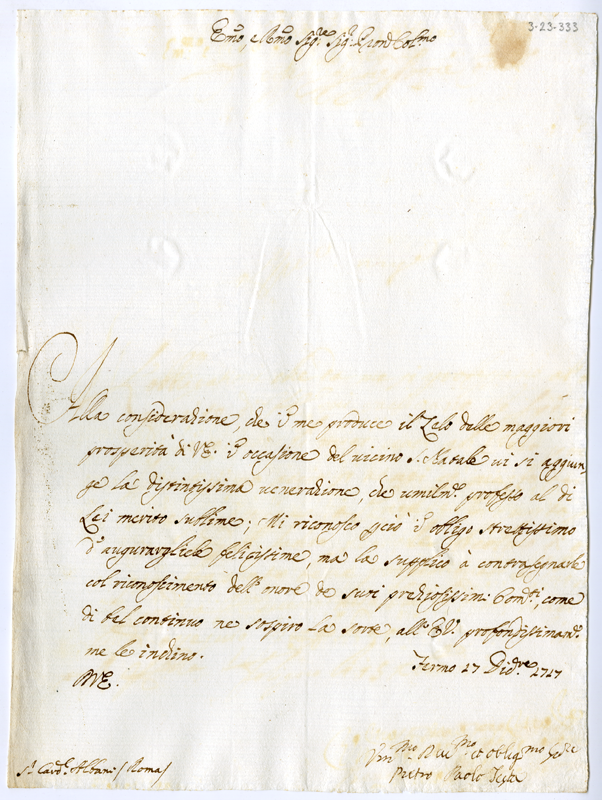 3-23-333
Emo, e Rmo Sigre Sigr Pron Colmo
Alla considerazione, che in me produce il Zelo delle maggiori
prosperità di VE. in occasione del vicino S. Natale vi si aggiun,
ge la distintissima venerazione, che umilmte professo al di
Lei merito sublime; Mi riconosco perciò in obligo strettissimo
d'augurargliele felicissime, ma la supplico à contrasegnarle
col riconoscimento dell'onore de suoi preziosissimi Comti, come
di bel continuo ne sospiro la sorte, all'EV. profondissimamte
me le inchino.
Fermo 17 Dicbre 1717
DVE.
Sr Cardl Albani (Roma)
Vmmo Devmo et obligmo Sre
Pietro Paolo Testa